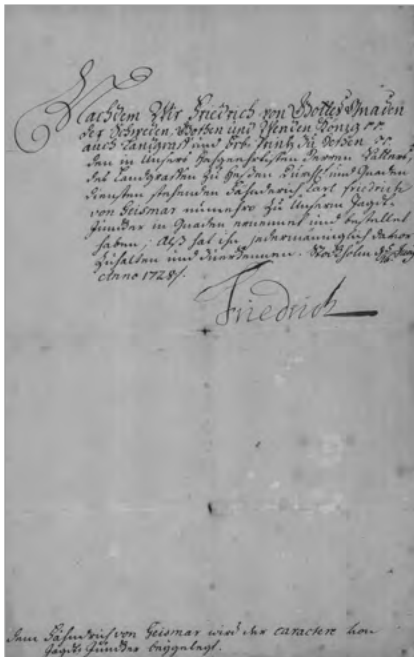 Nachdem Wir Friedrich von Gottes Gnaden
der Schweden, Gothen und Wenden König
auch Landgraf und Erb Printz zu Heßen
den in Unsers Herren Vatters,
des Landgrafen zu Heßen und Gnaden
diensten stehenden Fähndrich Carl Friedrich
von Geismar nunmehro zu Unserm Jagdt
Juncker in Gnaden ernennet und bestellet
haben; Alß hat ihn jedermänniglich davor
zuhalten und zuerkennen. Stockholm
Anno 1728
Friedrich
dem Fähndrich von Geismar wird der caractere von
Jagdt-Juncker beygelegt.